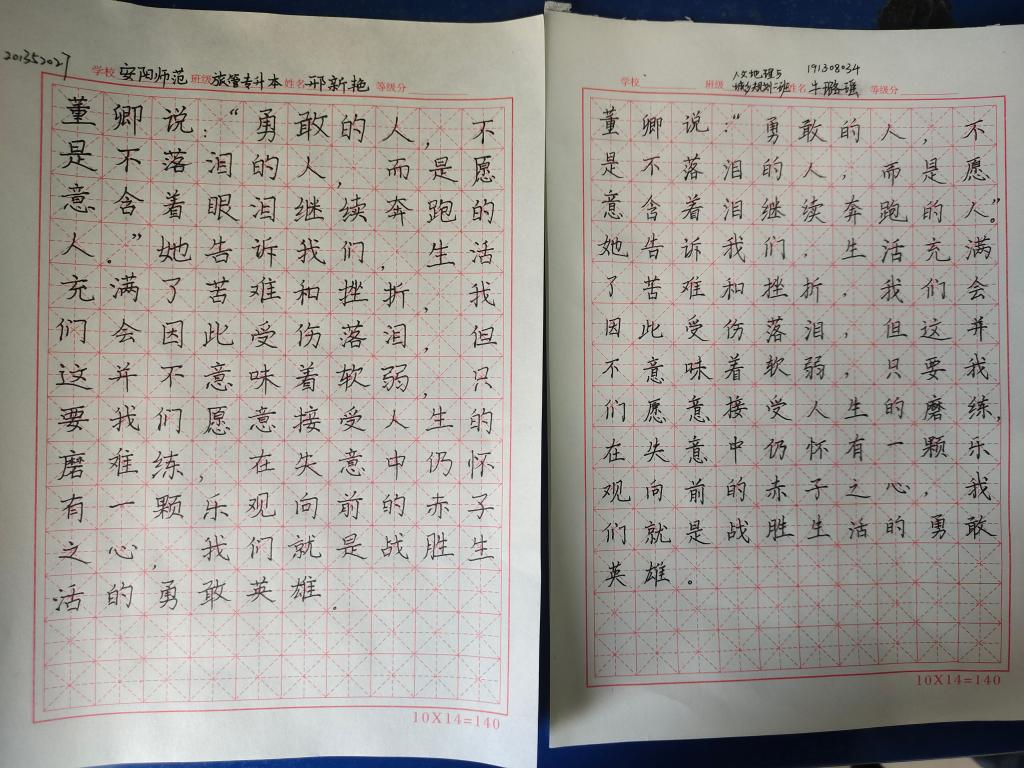 201352027
学校 安阳师范 班级 旅管专升本 姓名 邢新艳 等级分
董卿说:“勇敢的人,不
是不落泪的人,而是愿
意含着眼泪继续奔跑的
人.”她告诉我们,生活
充满了苦难和挫折,我
们会因此受伤落泪,但
这并不意味着软弱,只
要我们愿意接受人生的
磨难练,在失意中仍怀
有一颗乐观向前的赤子
之心,我们就是战胜生
活的勇敢英雄.
10X14=140
人文地理与 191308034
学校 班级 城乡规划二班 姓名 牛璐瑶 等级分
董卿说:“勇敢的人,不
是不落泪的人,而是愿
意含着泪继续奔跑的人。”
她告诉我们,生活充满
了苦难和挫折,我们会
因此受伤落泪,但这并
不意味着软弱,只要我
们愿意接受人生的磨练,
在失意中仍怀有一颗乐
观向前的赤子之心,我
们就是战胜生活的勇敢
英雄。
10X14=140